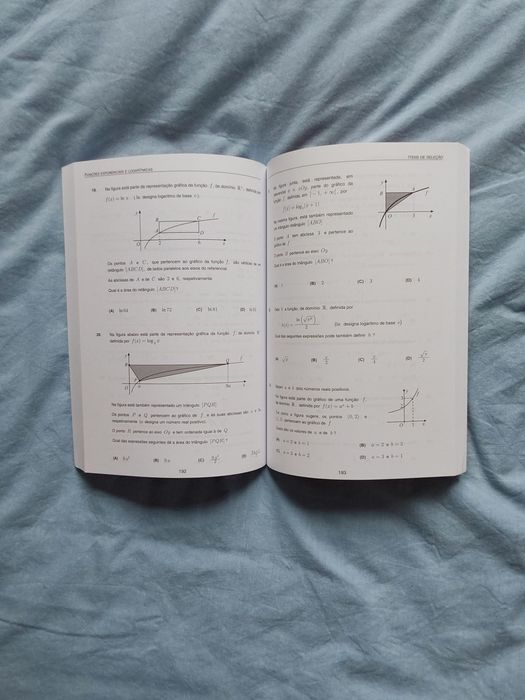 FUNÇÕES EXPONENCIAIS E LOGARÍTMICAS
19. Na figura está parte da representação gráfica da função f, de domínio ℝ⁺, definida por
f(x) = ln x (ln designa logaritmo de base e).
y
f
B C
A D
O 2 6 x
Os pontos A e C, que pertencem ao gráfico da função f, são vértices de um
retângulo [ABCD], de lados paralelos aos eixos do referencial.
As abcissas de A e de C são 2 e 6, respectivamente.
Qual é a área do retângulo [ABCD]?
(A) ln 64 (B) ln 72 (C) ln 81 (D) ln 85
20. Na figura abaixo está parte da representação gráfica da função f, de domínio ℝ⁺
definida por f(x) = log
y
R Q
P
O a x
Na figura está também representado um triângulo [PQR].
Os pontos P e Q pertencem ao gráfico de f e as suas abcissas são a e
respetivamente (a designa um número real positivo).
O ponto R pertence ao eixo Oy e tem ordenada igual à de Q.
Qual das expressões seguintes dá a área do triângulo [PQR]?
(A) (B) (C) (D)
192
ITENS DE SELEÇÃO
figura junta, está representada, em
referencial o. n. xOy, parte do gráfico da
função f, definida, em ]−1, +∞[, por
f(x) = log₂(x + 1)
Na mesma figura, está também representado
um triângulo retângulo [ABO].
O ponto A tem abcissa 3 e pertence ao
gráfico de f.
O ponto B pertence ao eixo Oy.
Qual é a área do triângulo [ABO]?
y
B A f
O 3 x
(A) 1 (B) 2 (C) 3 (D) 4
h a função, de domínio ℝ, definida por
h(x) = (ln designa logaritmo de base e)
Qual das seguintes expressões pode também definir h?
(B) x/2 (C) x/4
a e b dois números reais positivos.
Na figura está parte do gráfico de uma função f,
de domínio ℝ, definida por f(x) = aˣ + b
Tal como a figura sugere, os pontos (0, 2) e
pertencem ao gráfico de f
Quais são os valores de a e de b?
O 1 x
(A) a = 2 e b = 1 (B) a = 2 e b = 2
(C) a = 3 e b = 2 (D) a = 3 e b = 1
193